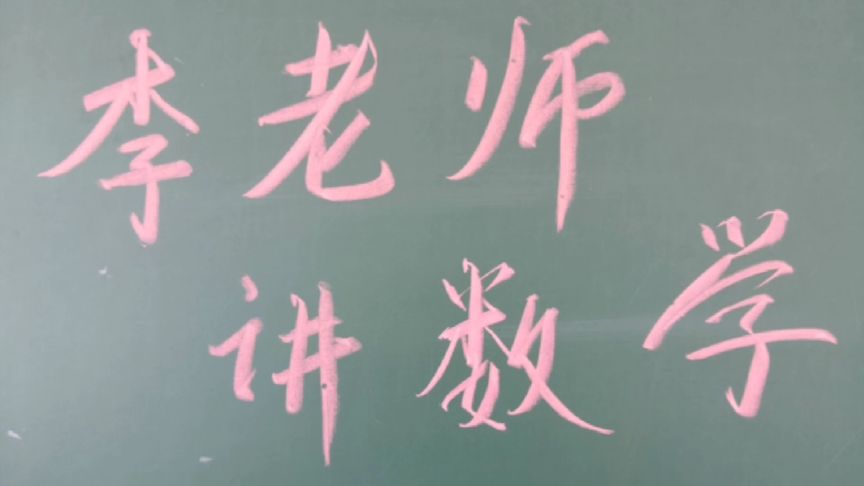 李老师
讲数学